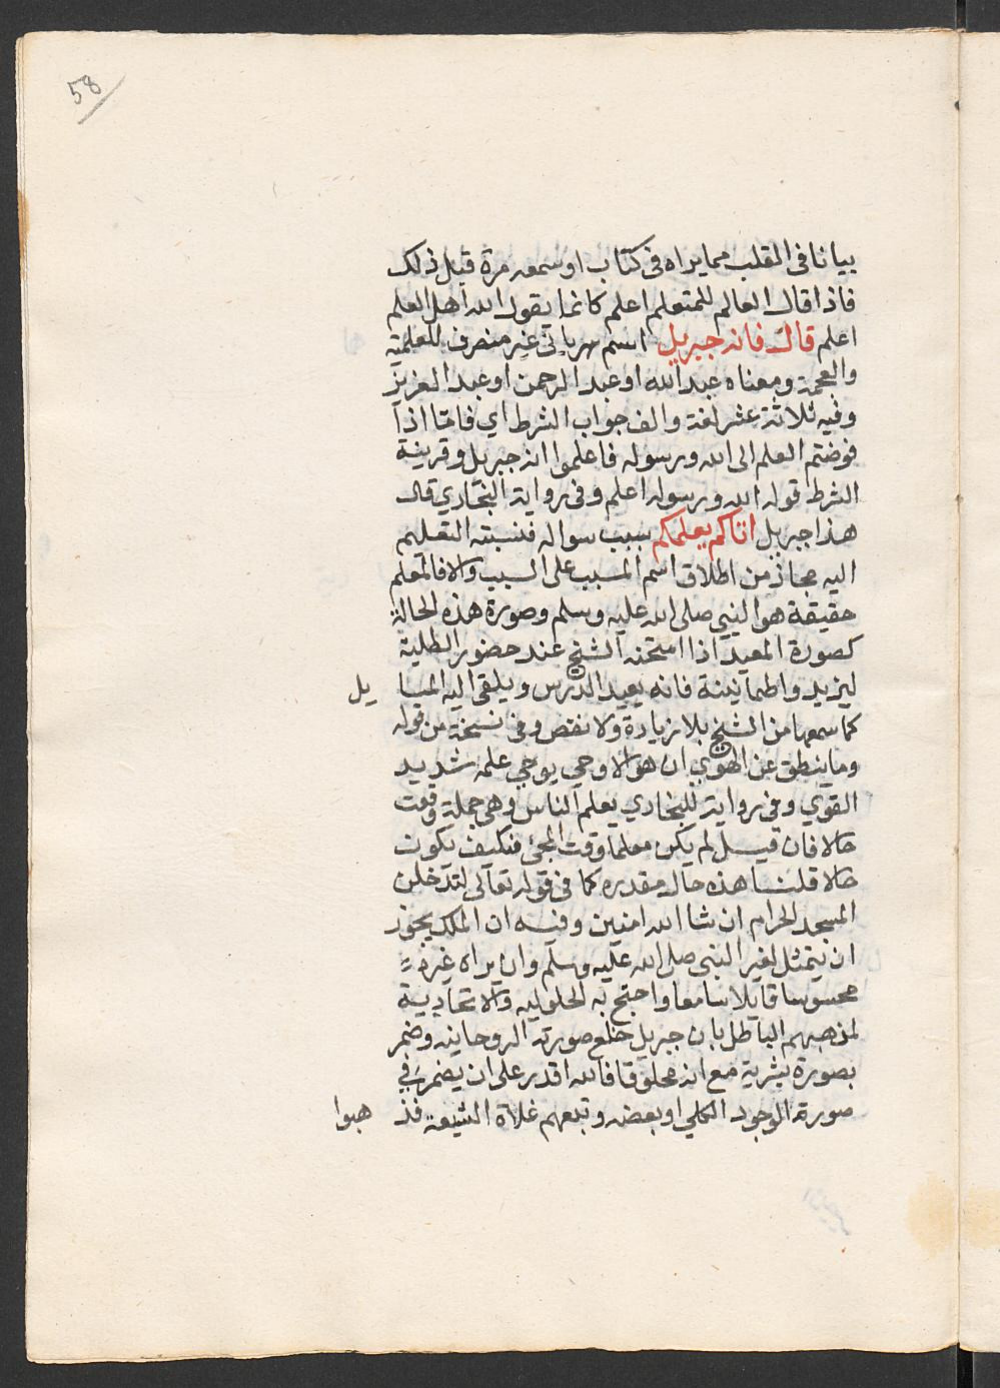 58
بيانا فى القلب مما يراه فى كتاب او سمعه مرة قبل ذلك
فاذا قال العالم للمتعلم اعلم كانما يقول الله اهل العلم
اعلم قال فانه جبريل اسم سريانى غير منصرف للعلمية
والعجمة ومعناه عبد الله او عبد الرحمن او عبد العزيز
وفيه ثلاثة عشر لغة والف جواب الشرط اي فاما اذا
فوضتم العلم الى الله ورسوله فاعلموا انه جبريل وقرينة
الشرط قوله الله ورسوله اعلم وفى رواية البخاري قال
هذا جبريل اتاكم يعلمكم بسبب سواله فنسبته التعليم
اليه مجاز من اطلاق اسم المسبب على السبب والا فالمعلم
حقيقة هو النبي صلى الله عليه وسلم وصورة هذه الحالة
كصورة المعيد اذا امتحنه الشيخ عند حضور الطلبة
ليزيد واطمانينة فانه يعيد الدرس ويلقى اليه المسا يل
كما سمعها من الشيخ بلا زيادة ولا نقص وفى نسخة من قوله
وما ينطق عن الهوي ان هو الا وحي يوحي علمه شديد
القوي وفى رواية للبخاري يعلم الناس وهى جملة وقعت
حالا فان قيل لم يكن معلما وقت المجئ فكيف يكون
حالا قلنا هذه حال مقدره كما فى قوله تعالى لتدخلن
المسجد الحرام ان شا الله امنين وفيه ان الملك يجوز
ان يتمثل لغير النبى صلى الله عليه وسلم وان يراه غيره
محسوسا قايلا سامعا واحتج به الحلوليه والاتحادية
لمذهبهم الباطل بان جبريل خلع صورته الروحانيه وضمر
بصورة بشرية مع انه مخلوق فالله اقدر على ان يضمر فى
صورة الوجود الكلي او بعضه وتبعهم غلاة الشيعة فذ هبوا